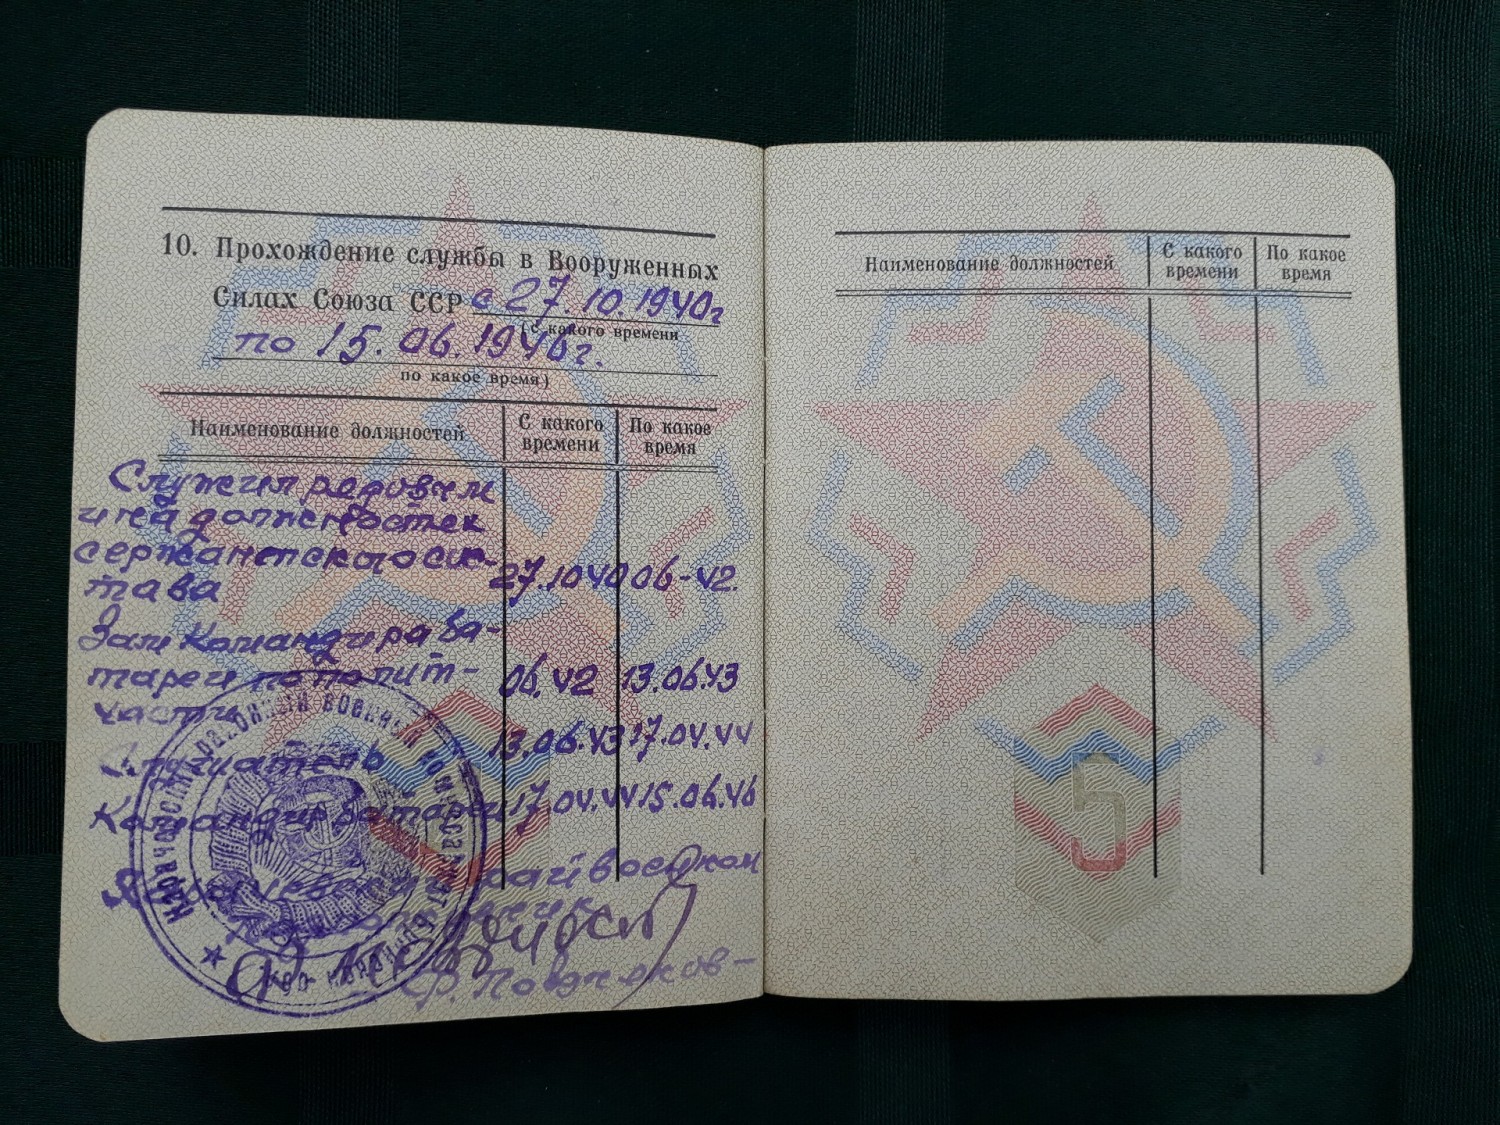 10. Прохождение службы в Вооруженных
Силах Союза ССР с 27.10.1940г
(с какого времени
по 15.06.1946г.
по какое время)
Наименование должностей
С какого времени
По какое время
Служил рядовым
и на должностях
сержантского сос-
тава
27.10 40
06-42.
Зам Командира ба-
тареи по полит-
части
06.42
13.06.43
Слушатель
13.06.43
17.04.44
Командир батареи
17.04.44
15.06.46
райвоенком
районный военный комиссариат
5
Наименование должностей
С какого времени
По какое время